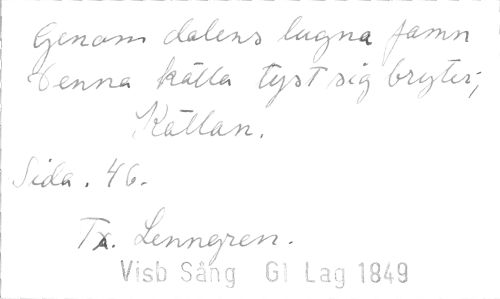 Genom dalens lugna famn
denna källa tyst sig bryter;
Källan.
Sida. 46.
Tx. Lenngren.
Visb Sång Gl Lag 1849